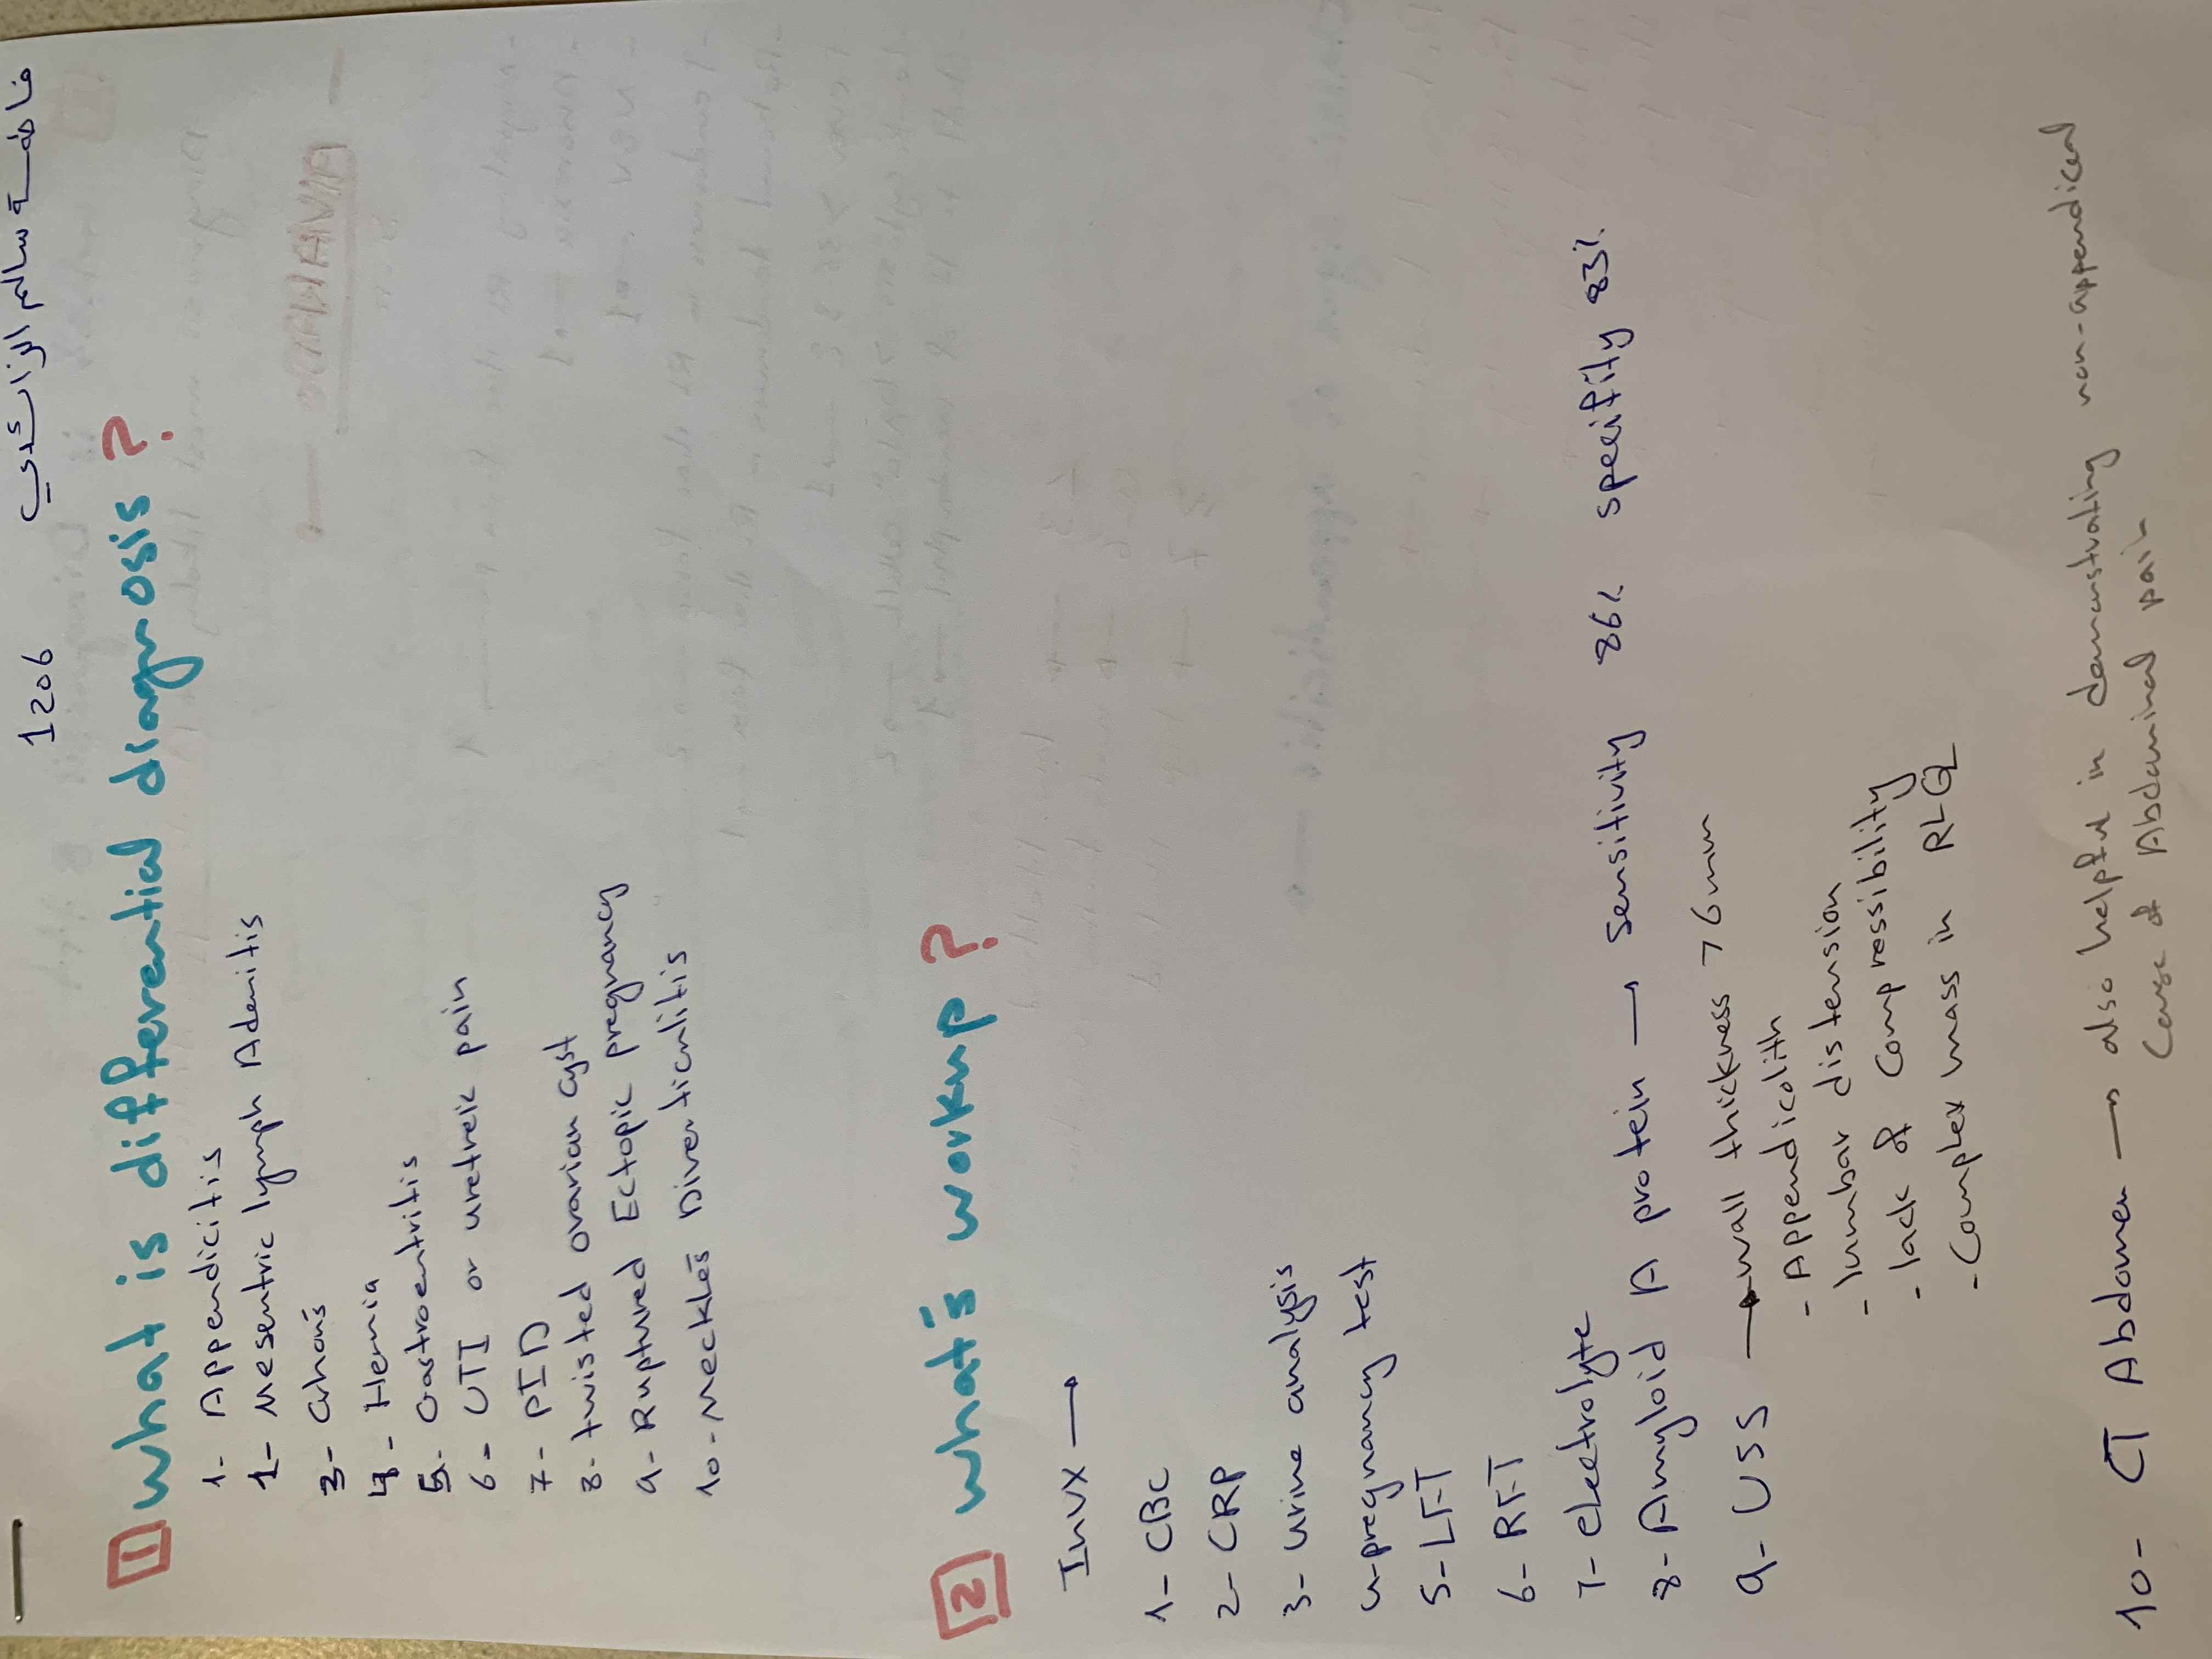 1206 فاطمة سالم الراشدي
1 what is differential diagnosis ?
1- Appendicitis
2- Mesentric lymph Adenitis
3- crhon's
4- Hernia
5- Gastroentritis
6- UTI or uretreic pain
7- PID
8- twisted ovarian cyst
9- Ruptured Ectopic pregnancy
10- Meckles Diverticulitis
2 what's workup ?
Invx →
1- CBC
2- CRP
3- urine analysis
4- pregnancy test
5- LFT
6- RFT
7- electrolyte
8- Amyloid A protein → sensitivity 86% speifity 83%
9- USS → wall thickness > 6mm
- Appendicolith
- lumbar distension
- lack of Compressibility
- Complex mass in RLQ
10- CT Abdomen → also helpful in demonstrating non-appendiceal
Cause of Abdominal pain